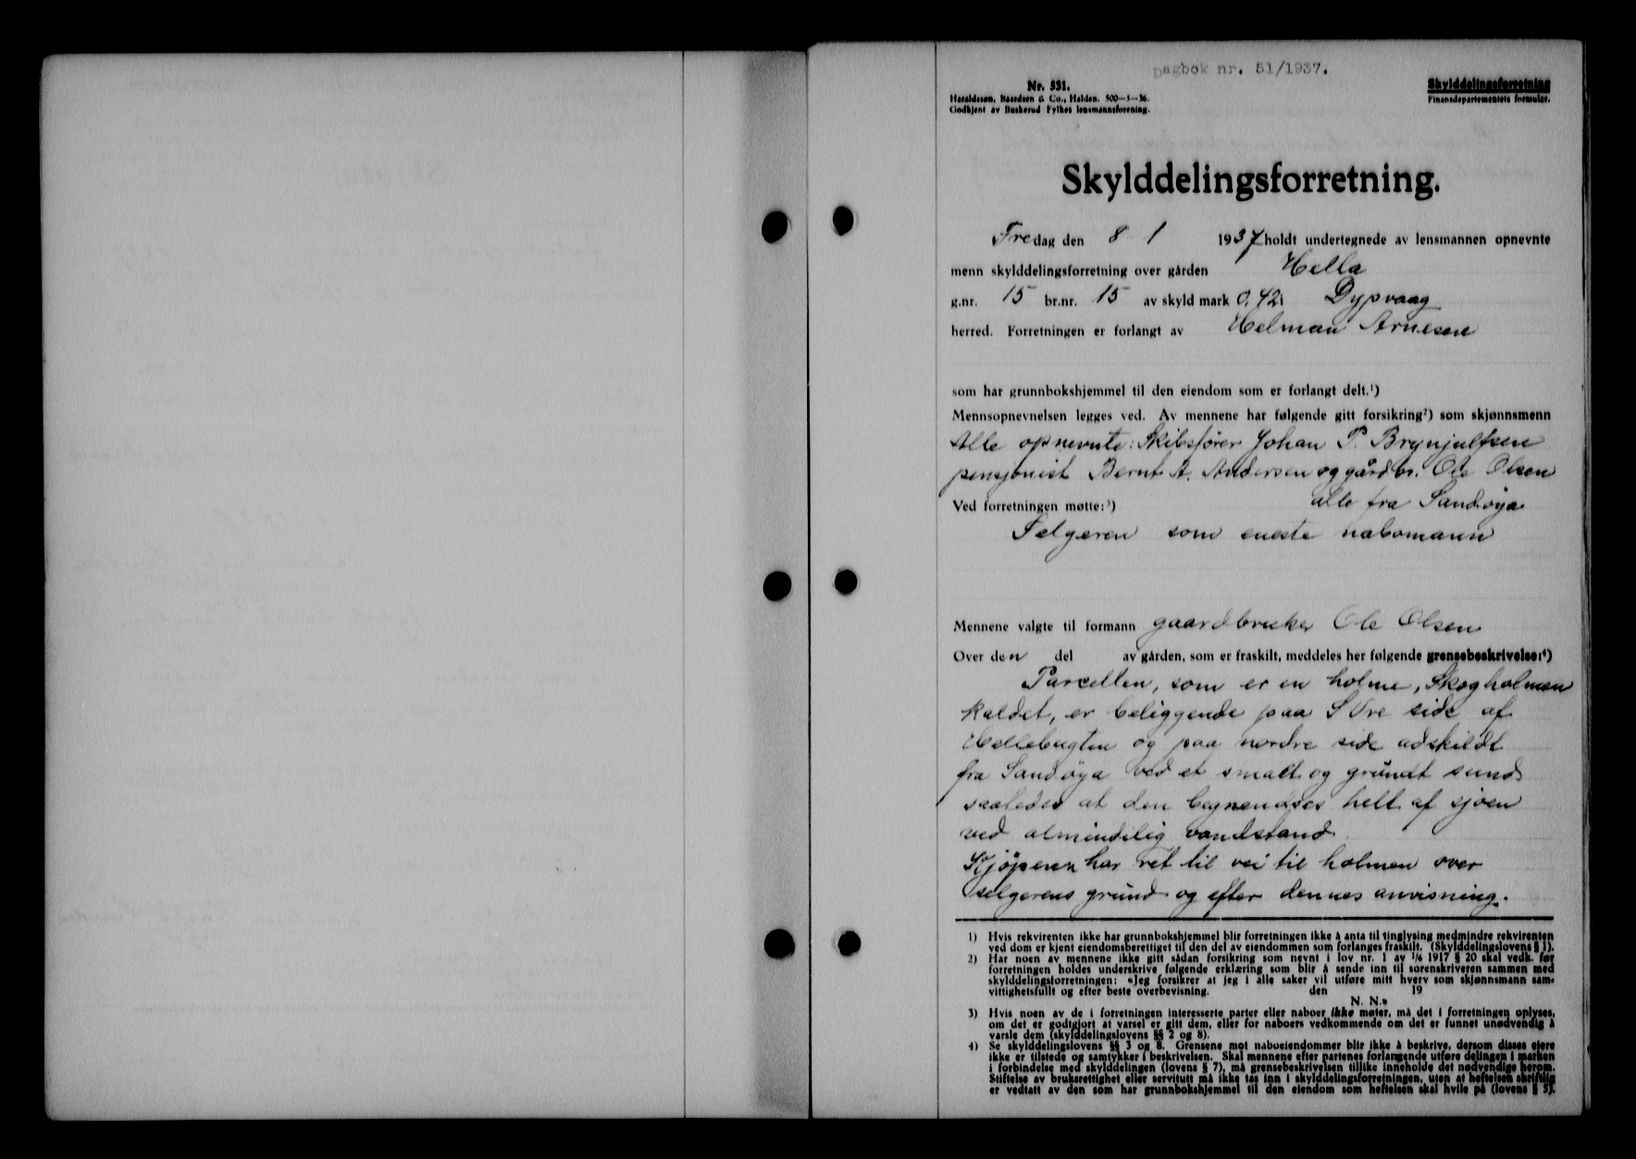 Dagbok nr. 51/1937.
Nr. 331.
Haraldssen, Baardsen & Co., Halden. 500—5—36.
Godkjent av Buskerud Fylkes lensmannsforening.
Skylddelingsforretning
Finansdepartementets formular.
Skylddelingsforretning.
Fredag den 8 - 1 1937 holdt undertegnede av lensmannen opnevnte
menn skylddelingsforretning over gården Hella
g.nr. 15 br.nr. 15 av skyld mark 0,42 i Dypvaag
herred. Forretningen er forlangt av Helman Arnesen
som har grunnbokshjemmel til den eiendom som er forlangt delt.¹)
Mennsopnevnelsen legges ved. Av mennene har følgende gitt forsikring²) som skjønnsmenn
Alle opnevnte: Skibsfører Johan P. Brynjulfsen
pensjonist Bernt A. Andersen og gårdbr. Ole Olsen
alle fra Sandøya
Ved forretningen møtte:³)
Selgeren som eneste nabomann
Mennene valgte til formann gaardbruker Ole Olsen
Over den del av gården, som er fraskilt, meddeles her følgende grensebeskrivelse:⁴)
Parcellen, som er en holme, Skogholmen
kaldet, er beliggende paa side af
Hellebugten og paa nordre side adskildt
fra Sandøya ved et smalt og grundt sund
saaledes at den begrendses helt af sjøen
ved almindelig vandstand.
Kjøperen har ret til vei til holmen over
selgerens grund og efter dennes anvisning.
1) Hvis rekvirenten ikke har grunnbokshjemmel blir forretningen ikke å anta til tinglysing medmindre rekvirenten
ved dom er kjent eiendomsberettiget til den del av eiendommen som forlanges fraskilt. (Skylddelingslovens § 1).
2) Har noen av mennene ikke gitt sådan forsikring som nevnt i lov nr. 1 av 1/6 1917 § 20 skal vedk. før
forretningen holdes underskrive følgende erklæring som blir å sende inn til sorenskriveren sammen med
skylddelingsforretningen: «Jeg forsikrer at jeg i alle saker vil utføre mitt hverv som skjønnsmann sam-
vittighetsfullt og efter beste overbevisning. den 19
N. N.»
3) Hvis noen av de i forretningen interesserte parter eller naboer ikke møter, må det i forretningen oplyses,
om det er godtgjort at varsel er gitt dem, eller for naboers vedkommende om det er funnet unødvendig å
varsle dem (skylddelingslovens §§ 2 og 8).
4) Se skylddelingslovens §§ 3 og 8. Grensene mot naboeiendommer blir ikke å beskrive, dersom disses eiere
ikke er tilstede og samtykker i beskrivelsen. Skal mennene efter partenes forlangende utføre delingen i marken
i forbindelse med skylddelingen (lovens § 7), må grensebeskrivelsen tillike inneholde det nødvendige herom.
Stiftelse av bruksrettighet eller servitutt må ikke tas inn i skylddelingsforretningen, uten at heftelsen skriftlig
er vedtatt av den som har grunnbokshjemmel til den eiendom som heftelsen skal hvile på (lovens § 5).